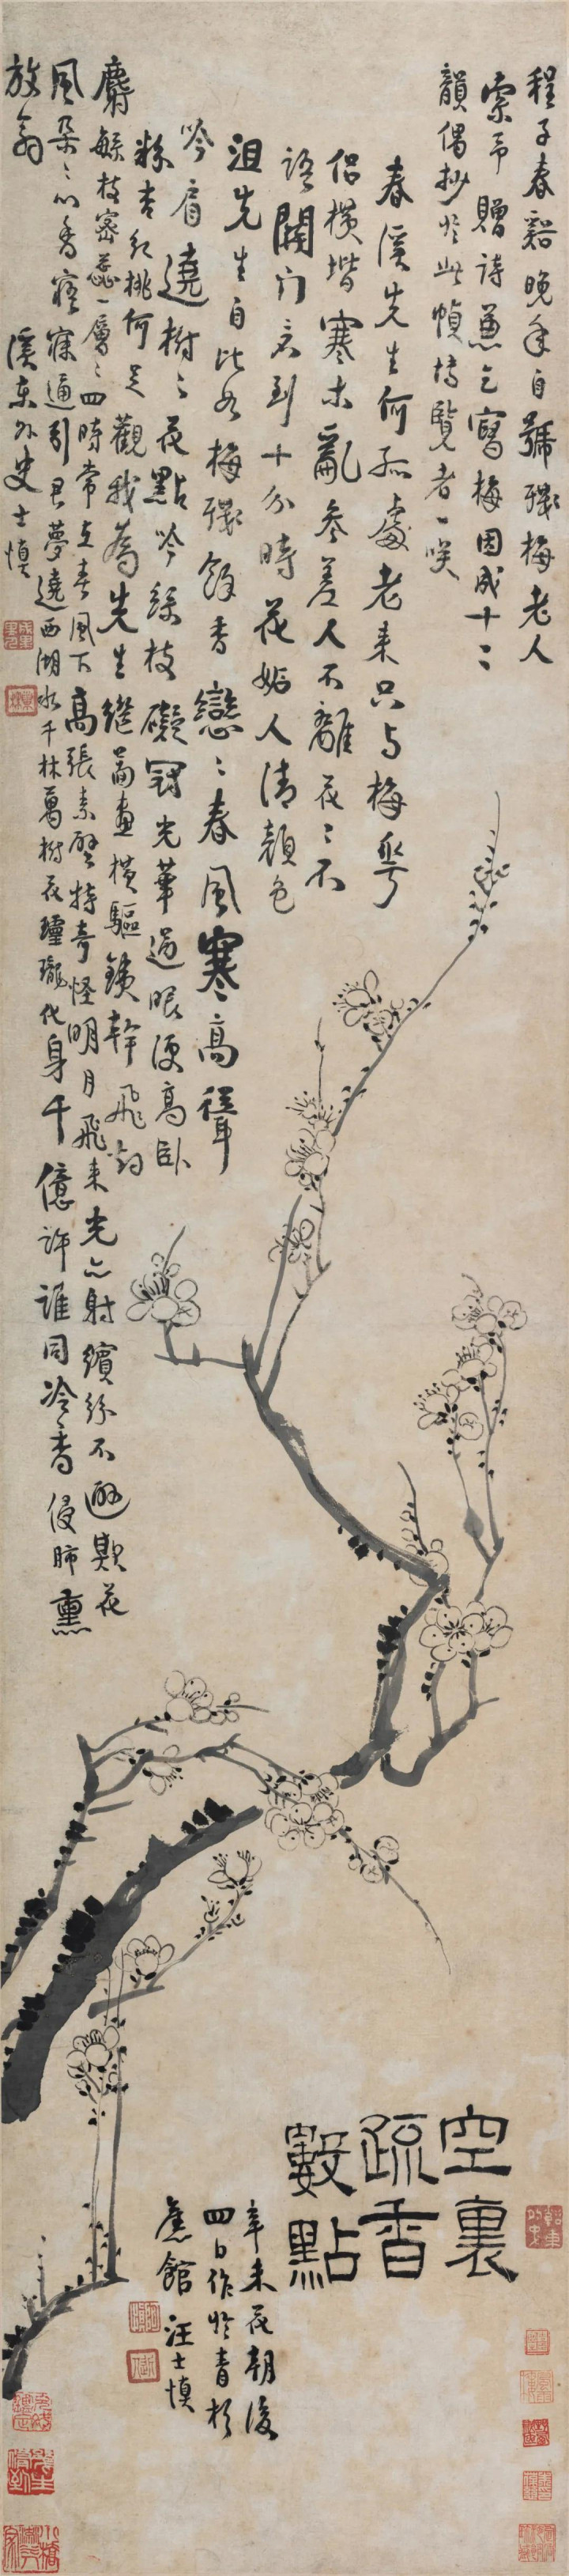 程子春谿晚年自號殘梅老人
索予贈詩兼乞寫梅因成十二
韻偶抄於此幀博覽者一咲
春溪先生何孤處老來只與梅花
侶橫堦寒木亂參差人不離花花不
語關門之到十分時花如人清顏色
沮先生自比如梅殘餘香戀戀春風寒高聲
吟肩遶樹樹花點吟絲枝礙冠光華過眼便高臥
粉杏紅桃何足觀我為先生繼畱畫橫驅鐵幹飛
麝鬆枝密蕊一層層四時常在春風下高張素壁特奇怪明月飛來光亦射繽紛不避欺花
風朵朵心香寤寐通引君夢遶西湖水千林萬樹花瓏瓏化身千億許誰同冷香侵肺薰
放翁
溪東外史士慎
空裏
疏香
數點
辛未花朝後
四日作於青杉
舊館 汪士慎